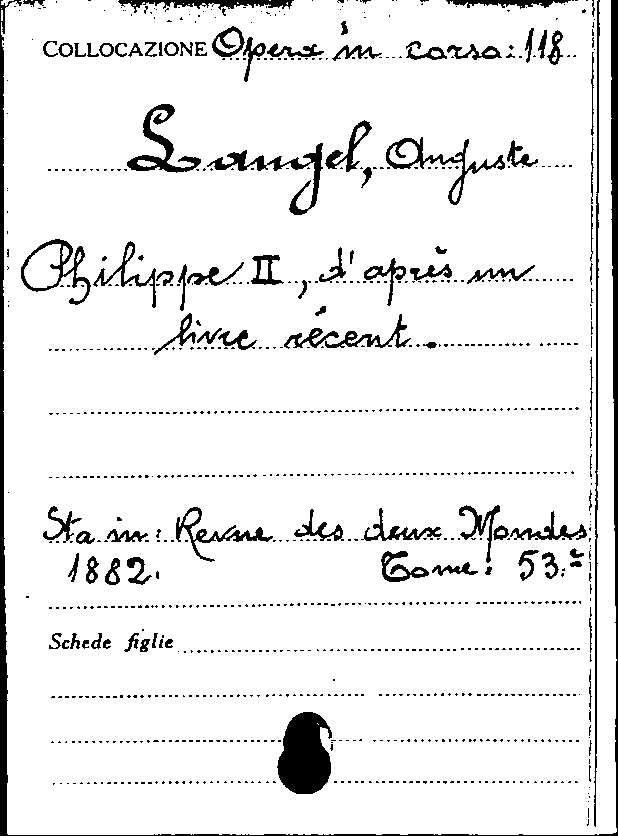 COLLOCAZIONE Opera in corso: 118
Laugel, Auguste
Philippe II, d'après un
livre récent.
Sta in: Revue des deux Mondes
1882. Tome: 53.e
Schede figlie